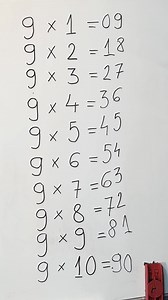 9 × 1 = 09
9 × 2 = 18
9 × 3 = 27
9 × 4 = 36
9 × 5 = 45
9 × 6 = 54
9 × 7 = 63
9 × 8 = 72
9 × 9 = 81
9 × 10 = 90